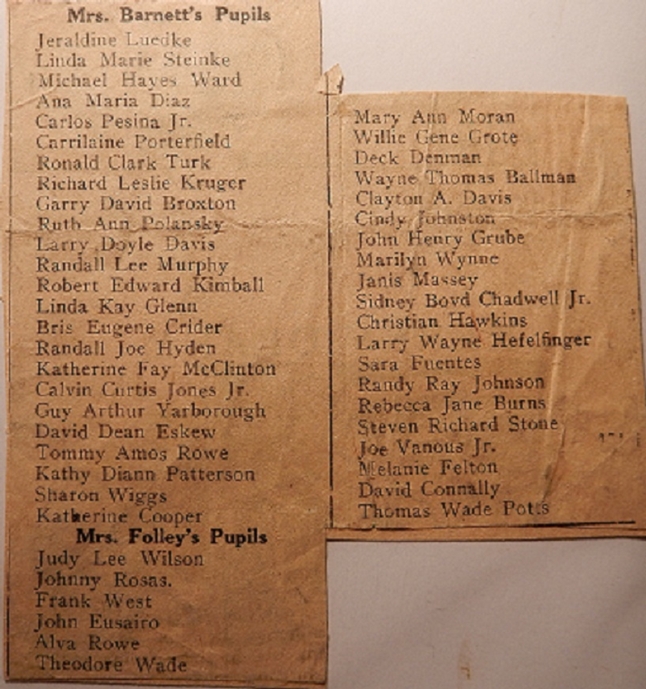 Mrs. Barnett's Pupils
Jeraldine Luedke
Linda Marie Steinke
Michael Hayes Ward
Ana Maria Diaz
Carlos Pesina Jr.
Carrilaine Porterfield
Ronald Clark Turk
Richard Leslie Kruger
Garry David Broxton
Ruth Ann Polansky
Larry Doyle Davis
Randall Lee Murphy
Robert Edward Kimball
Linda Kay Glenn
Bris Eugene Crider
Randall Joe Hyden
Katherine Fay McClinton
Calvin Curtis Jones Jr.
Guy Arthur Yarborough
David Dean Eskew
Tommy Amos Rowe
Kathy Diann Patterson
Sharon Wiggs
Katherine Cooper
Mrs. Folley's Pupils
Judy Lee Wilson
Johnny Rosas.
Frank West
John Eusairo
Alva Rowe
Theodore Wade
Mary Ann Moran
Willie Gene Grote
Deck Denman
Wayne Thomas Ballman
Clayton A. Davis
Cindy Johnston
John Henry Grube
Marilyn Wynne
Janis Massey
Sidney Boyd Chadwell Jr.
Christian Hawkins
Larry Wayne Hefelfinger
Sara Fuentes
Randy Ray Johnson
Rebecca Jane Burns
Steven Richard Stone
Joe Vanous Jr.
Melanie Felton
David Connally
Thomas Wade Potts